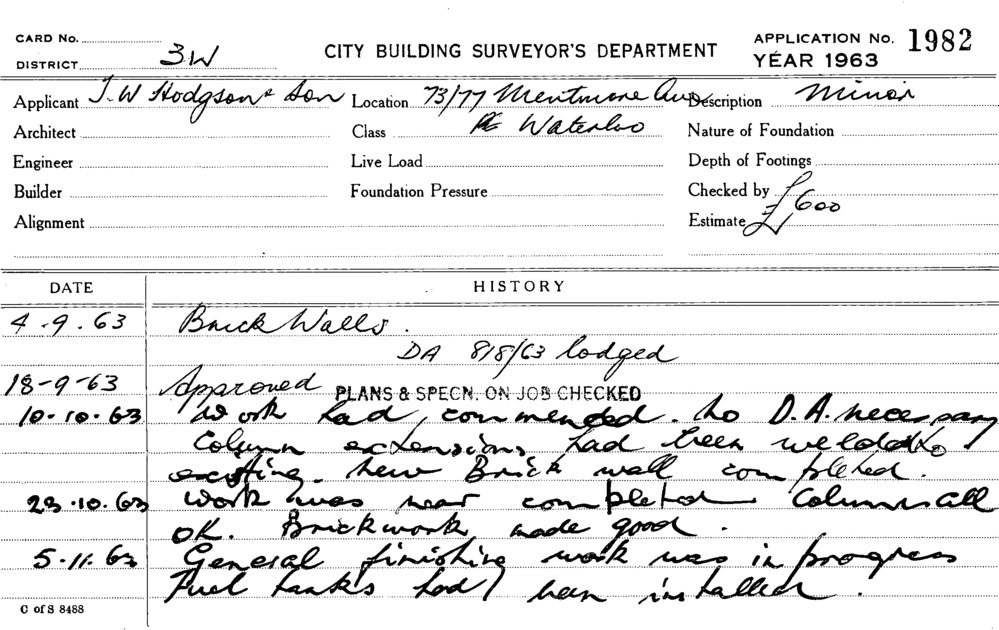 CARD No.
DISTRICT 3W
CITY BUILDING SURVEYOR'S DEPARTMENT
APPLICATION No. 1982
YEAR 1963
Applicant J.W Hodgson & Son Location 73/77 Mentmore Ave Description Minor
Architect Class Waterloo Nature of Foundation
Engineer Live Load Depth of Footings
Builder Foundation Pressure Checked by
Alignment Estimate £600
DATE HISTORY
4.9.63 Brick Walls.
DA 818/63 lodged
18-9-63 Approved PLANS & SPECN. ON JOB CHECKED
10.10.63 Work had commenced. No D.A. necessary
Column extensions had been welded to
existing. New Brick wall completed.
23.10.63 Work was near completed Columns all
OK. Brickwork made good.
5.11.63 General finishing work was in progress
Fuel tanks had been installed.
C of S 8488